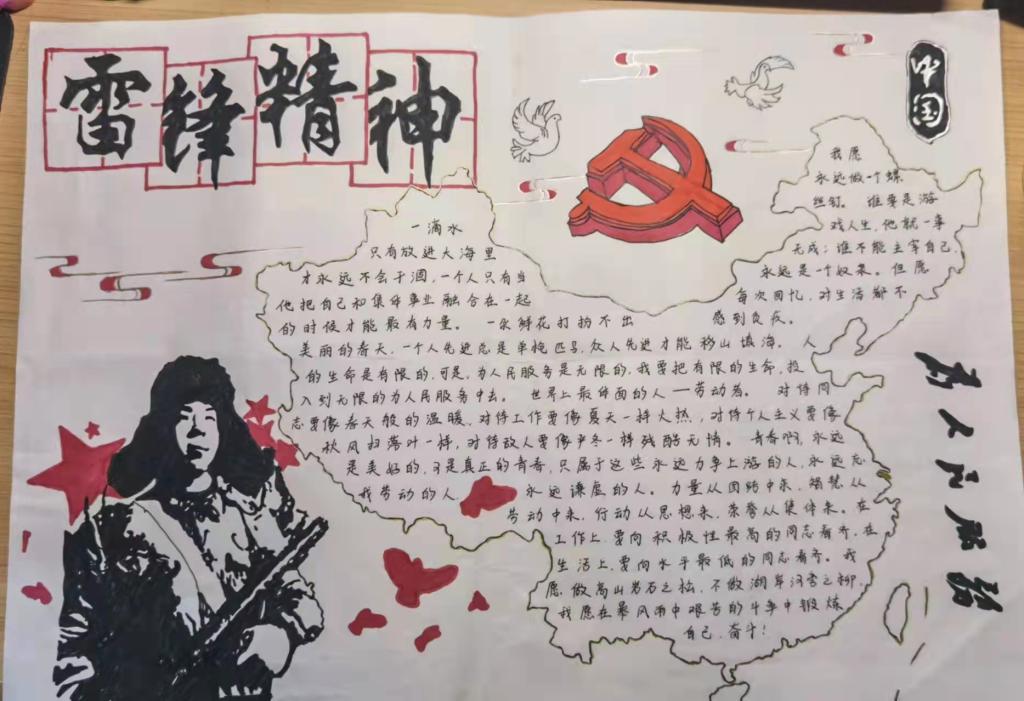 雷锋精神
中国
我愿
永远做一个螺
丝钉。谁要是游
戏人生,他就一事
无成;谁不能主宰自己,
永远是一个奴隶。但愿
每次回忆,对生活都不
感到负疚。
一滴水
只有放进大海里
才永远不会干涸,一个人只有当
他把自己和集体事业融合在一起
的时候才能最有力量。一朵鲜花打扮不出
美丽的春天,一个人先进总是单枪匹马,众人先进才能移山填海。人
的生命是有限的,可是,为人民服务是无限的,我要把有限的生命,投
入到无限的为人民服务中去。世界上最体面的人——劳动者。对待同
志要像春天般的温暖,对待工作要像夏天一样火热,对待个人主义要像
秋风扫落叶一样,对待敌人要像严冬一样残酷无情。青春啊,永远
是美好的,可是真正的青春,只属于这些永远力争上游的人,永远忘
我劳动的人,永远谦虚的人。力量从团结中来,智慧从
劳动中来,行动从思想来,荣誉从集体来。在
工作上,要向积极性最高的同志看齐,在
生活上,要向水平最低的同志看齐。我
愿做高山岩石之松,不做湖岸河旁之柳,
我愿在暴风雨中艰苦的斗争中锻炼
自己,奋斗!
为人民服务